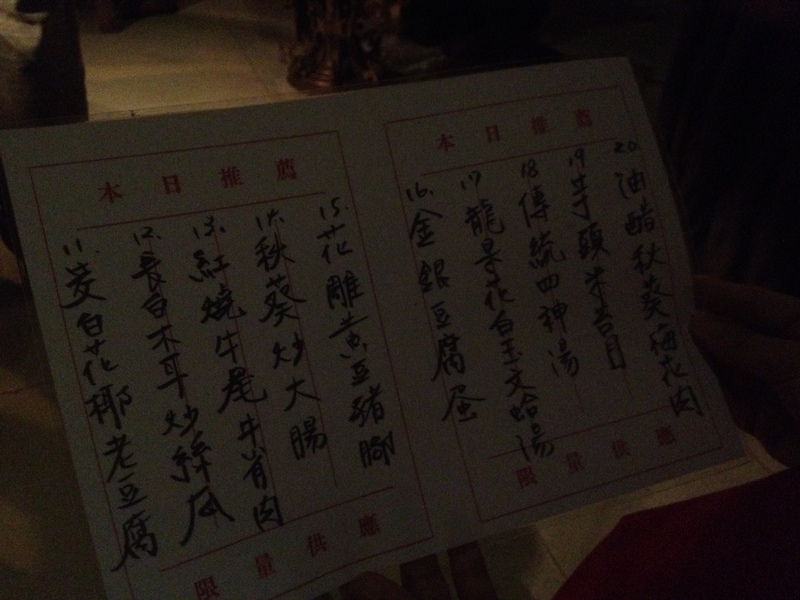 本日推薦
20. 油醋秋葵梅花肉
19. 芋頭米苔目
18. 傳統四神湯
17. 龍骨花白玉文蛤湯
16. 金銀豆腐蛋
限量供應
本日推薦
15. 花雕黃豆豬腳
14. 秋葵炒大腸
13. 紅燒牛尾牛肯肉
12. 長白木耳炒絲瓜
11. 茭白花椰老豆腐
限量供應